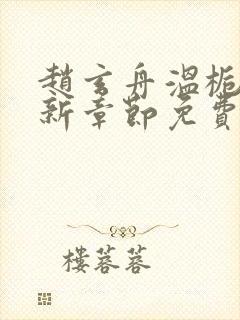 趙玄舟溫梔
新章節免費
樓蓉蓉